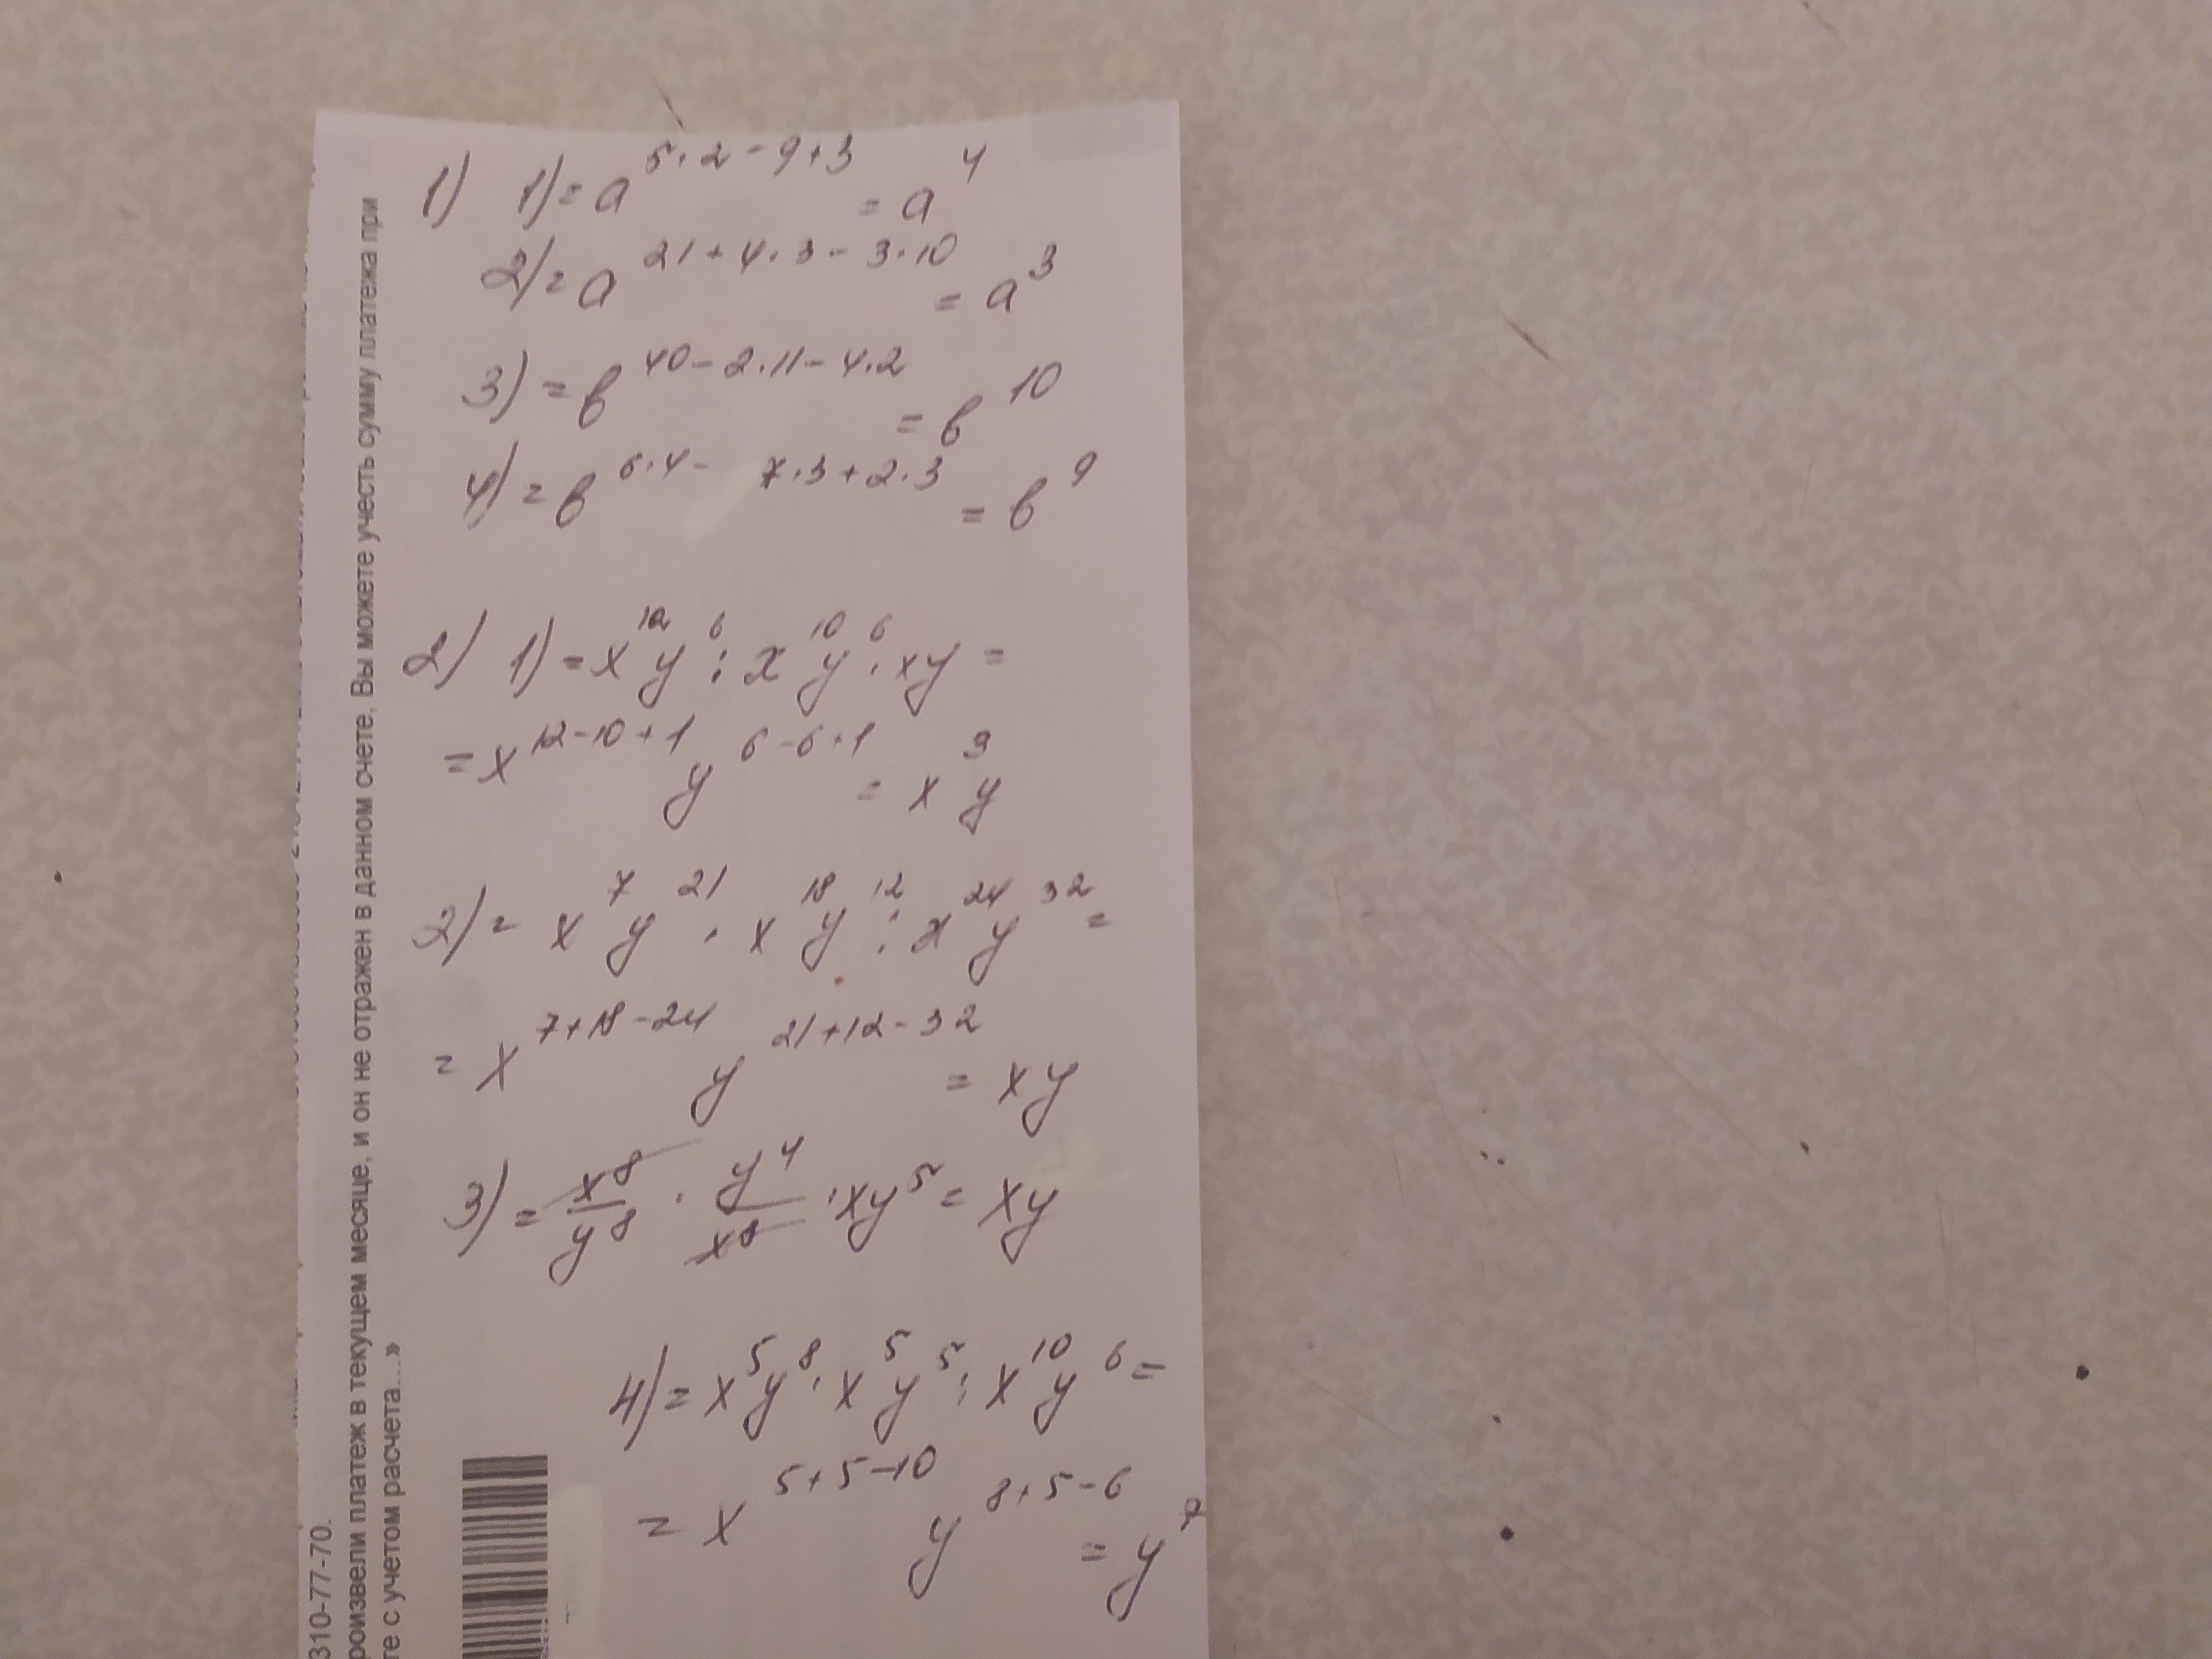 1) 1) = a^{5·2-9+3} = a^4
2) = a^{21+4·3-3·10} = a^3
3) = b^{40-2·11-4·2} = b^{10}
4) = b^{6·4-7·3+2·3} = b^9
2) 1) = x^{12}y^6 : x^{10}y^6 · xy =
= x^{12-10+1} y^{6-6+1} = x^3y
2) = x^7y^{21} · x^{18}y^{12} : x^{24}y^{32} =
= x^{7+18-24} y^{21+12-32} = xy
3) = x^8/y^8 · y^4/x^8 · xy^5 = xy
4) = x^5y^8 · x^5y^5 : x^{10}y^6 =
= x^{5+5-10} y^{8+5-6} = y^7
310-77-70.
роизвели платеж в текущем месяце, и он не отражен в данном счете, Вы можете учесть сумму платежа при
те с учетом расчета...»